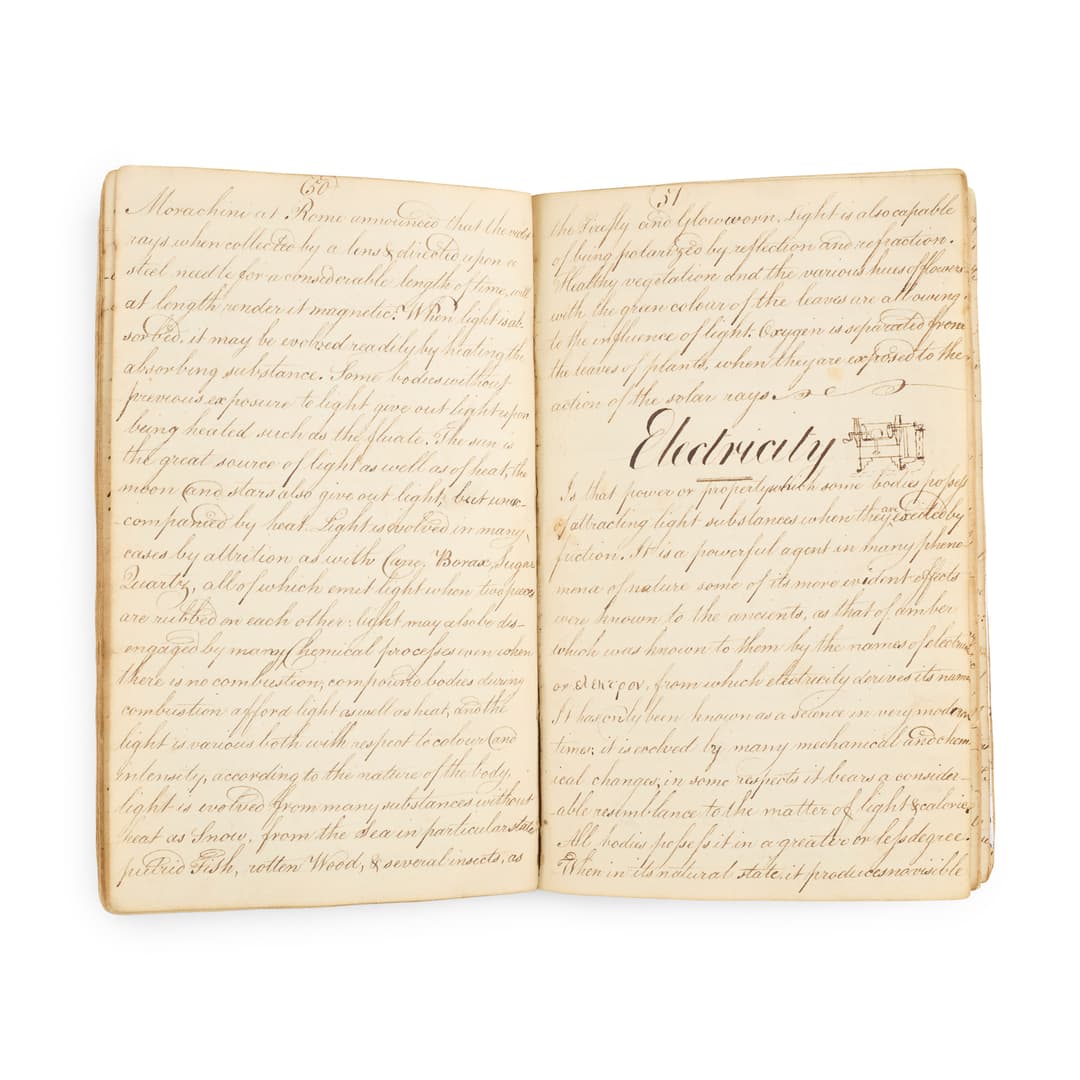 50
Morachini at Rome announced that the violet
rays when collected by a lens & directed upon a
steel needle for a considerable length of time, will
at length render it magnetic. When light is ab-
sorbed, it may be evolved readily by heating the
absorbing substance. Some bodies without
previous exposure to light give out light upon
being heated such as the fluate. The sun is
the great source of light as well as of heat, the
moon and stars also give out light, but unac-
companied by heat. Light is evolved in many
cases by attrition as with Cane, Borax, Sugar
Quartz, all of which emit light when two pieces
are rubbed on each other: light may also be dis-
engaged by many Chemical processes even when
there is no combustion, compound bodies during
combustion afford light as well as heat, and the
light is various both with respect to colour and
intensity, according to the nature of the body,
light is evolved from many substances without
heat as Snow, from the Sea in particular state
putrid Fish, rotten Wood, & several insects, as
51
the Firefly and Glowworn. Light is also capable
of being polarized by reflection and refraction.
Healthy vegetation and the various hues of flowers
with the green colour of the leaves are all owing
to the influence of light. Oxygen is separated from
the leaves of plants, when they are exposed to the
action of the solar rays.
Electricity
Is that power or property which some bodies possess
of attracting light substances when they are excited by
friction. It is a powerful agent in many pheno-
mena of nature some of its more evident effects
were known to the ancients, as that of amber
which was known to them by the names of
or ελεκτρον, from which electricity derives its name
It has only been known as a science in very modern
times; it is evolved by many mechanical and chem-
ical changes, in some respects it bears a consider-
able resemblance to the matter of light & caloric
All bodies possess it in a greater or less degree.
When in its natural state, it produces no visible